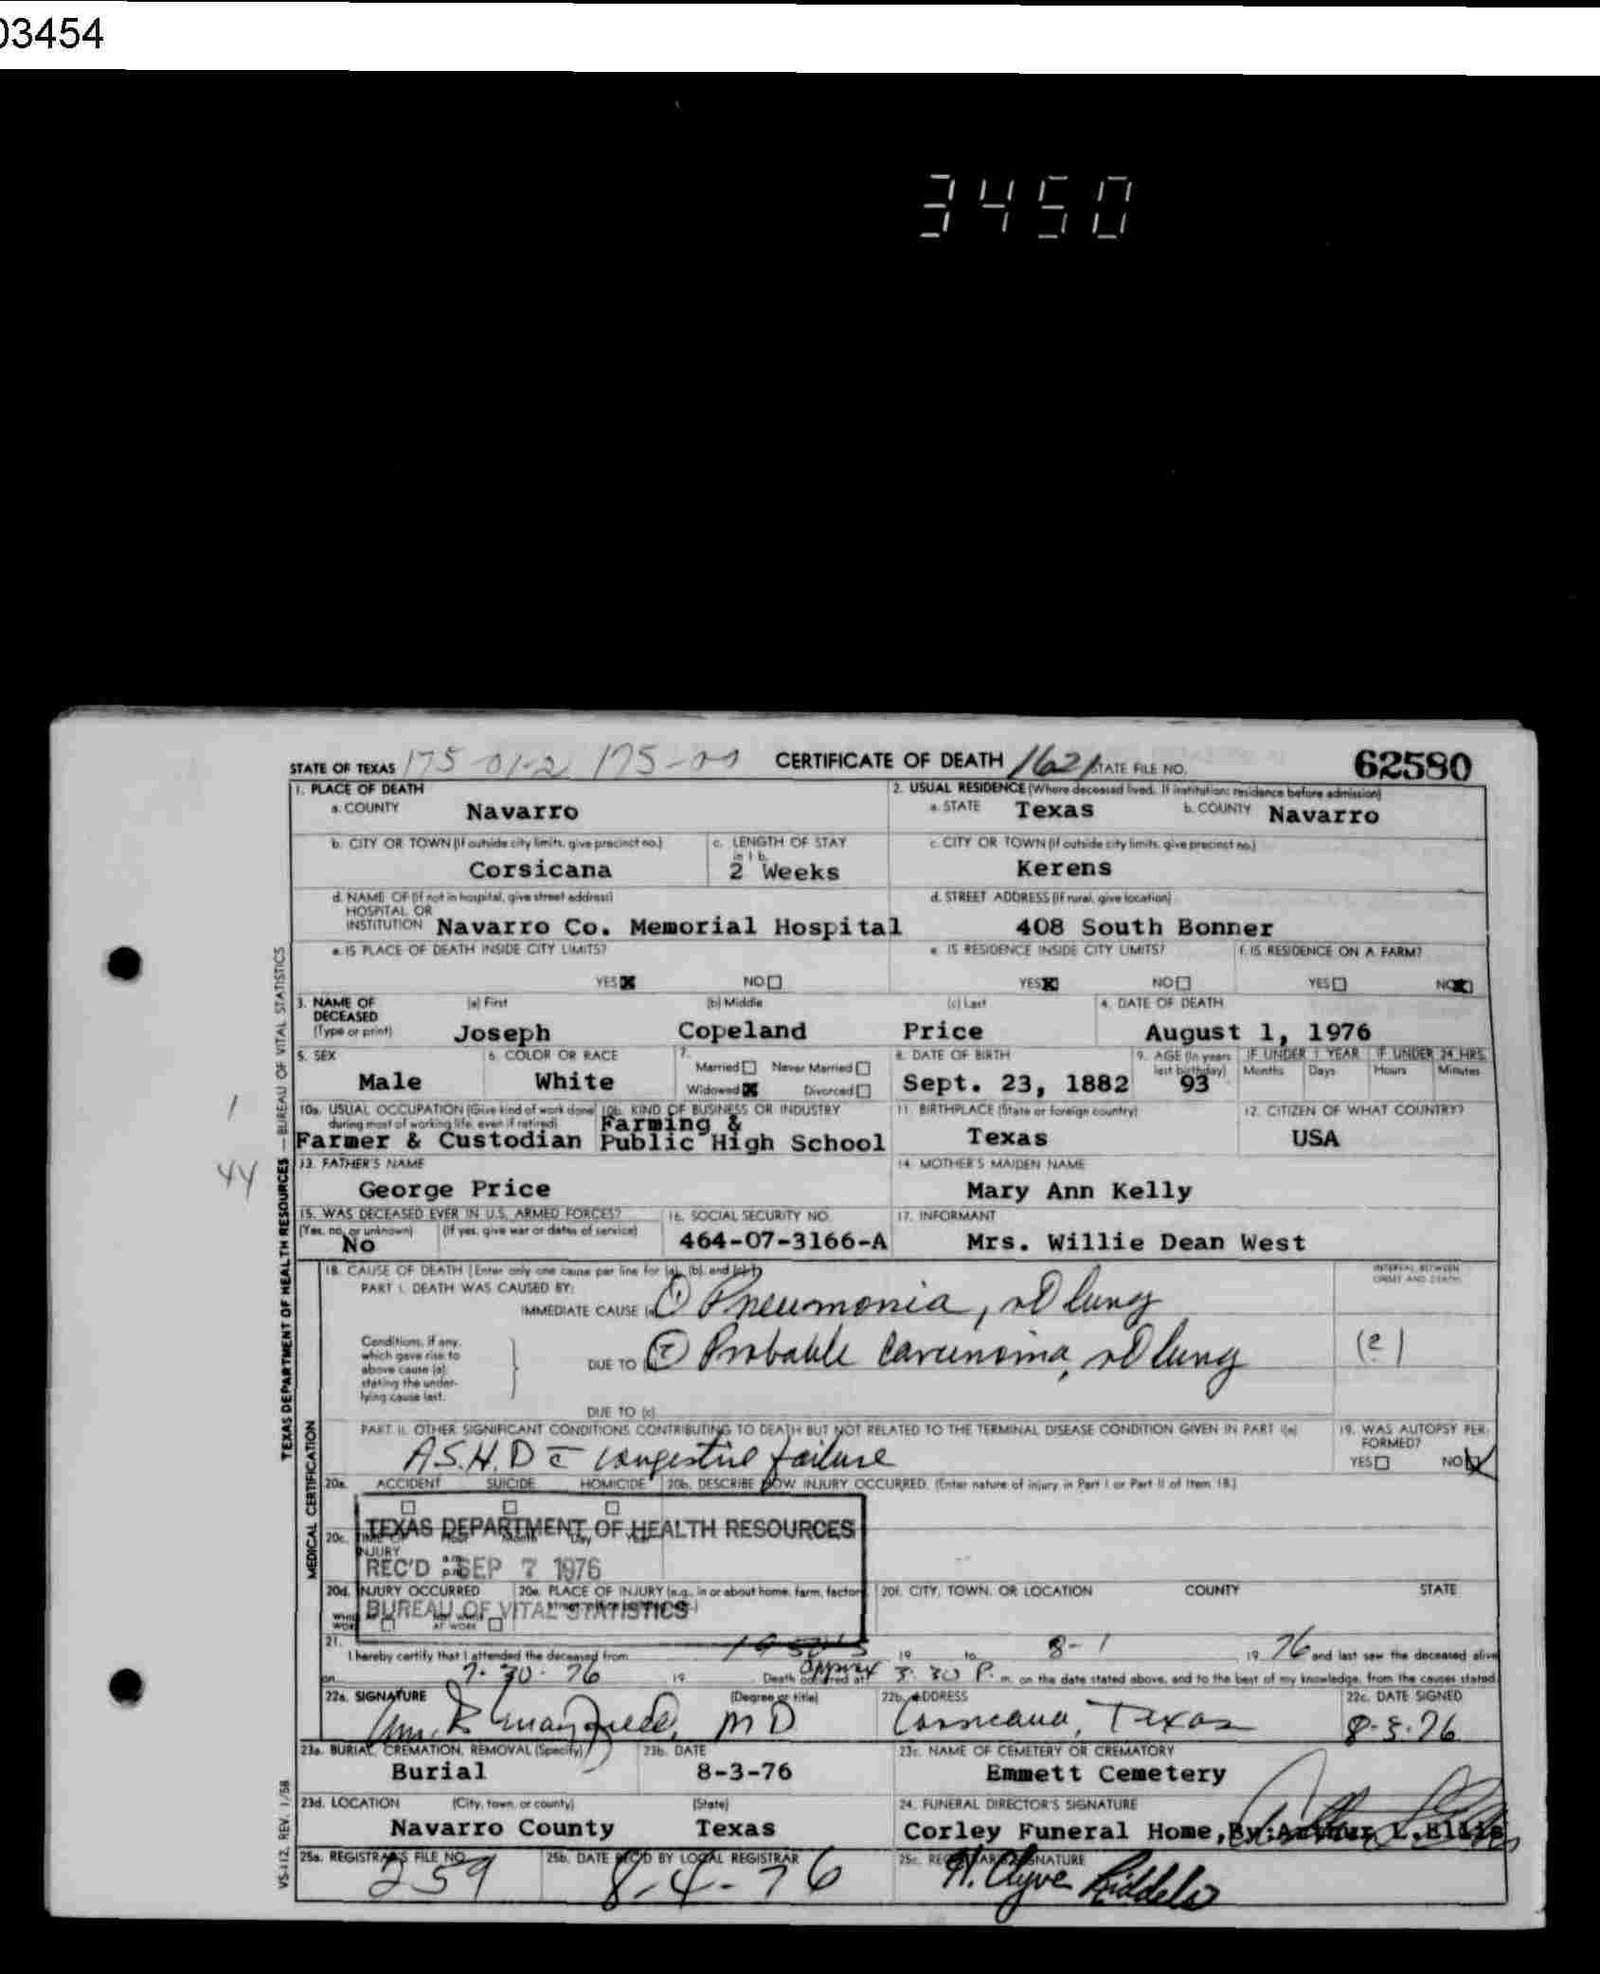 03454
3450
STATE OF TEXAS 175-01-2 175-00 CERTIFICATE OF DEATH 1621 STATE FILE NO. 62580
1. PLACE OF DEATH 2. USUAL RESIDENCE (Where deceased lived. If institution: residence before admission)
a. COUNTY Navarro a. STATE Texas b. COUNTY Navarro
b. CITY OR TOWN (If outside city limits, give precinct no.) c. LENGTH OF STAY in 1 b. c. CITY OR TOWN (If outside city limits, give precinct no.)
Corsicana 2 Weeks Kerens
d. NAME OF (If not in hospital, give street address) d. STREET ADDRESS (If rural, give location)
HOSPITAL OR
INSTITUTION Navarro Co. Memorial Hospital 408 South Bonner
e. IS PLACE OF DEATH INSIDE CITY LIMITS? e. IS RESIDENCE INSIDE CITY LIMITS? f. IS RESIDENCE ON A FARM?
YES NO YES NO YES NO
3. NAME OF DECEASED (a) First (b) Middle (c) Last 4. DATE OF DEATH
(Type or print) Joseph Copeland Price August 1, 1976
5. SEX 6. COLOR OR RACE 7. Married Never Married 8. DATE OF BIRTH 9. AGE (In years last birthday) IF UNDER 1 YEAR IF UNDER 24 HRS.
Months Days Hours Minutes
Male White Widowed Divorced Sept. 23, 1882 93
10a. USUAL OCCUPATION (Give kind of work done during most of working life, even if retired) 10b. KIND OF BUSINESS OR INDUSTRY 11. BIRTHPLACE (State or foreign country) 12. CITIZEN OF WHAT COUNTRY?
Farming &
Farmer & Custodian Public High School Texas USA
13. FATHER'S NAME 14. MOTHER'S MAIDEN NAME
George Price Mary Ann Kelly
15. WAS DECEASED EVER IN U.S. ARMED FORCES? 16. SOCIAL SECURITY NO. 17. INFORMANT
(Yes, no, or unknown) (If yes, give war or dates of service)
No 464-07-3166-A Mrs. Willie Dean West
18. CAUSE OF DEATH (Enter only one cause per line for (a), (b), and (c).) INTERVAL BETWEEN ONSET AND DEATH
PART I. DEATH WAS CAUSED BY:
IMMEDIATE CAUSE (a) ① Pneumonia, lung
Conditions, if any, which gave rise to above cause (a), stating the underlying cause last.
DUE TO ② Probable carcinoma, lung (?)
DUE TO (c)
PART II. OTHER SIGNIFICANT CONDITIONS CONTRIBUTING TO DEATH BUT NOT RELATED TO THE TERMINAL DISEASE CONDITION GIVEN IN PART I(a) 19. WAS AUTOPSY PERFORMED?
A.S.H.D c̄ congestive failure YES NO
20a. ACCIDENT SUICIDE HOMICIDE 20b. DESCRIBE HOW INJURY OCCURRED. (Enter nature of injury in Part I or Part II of Item 18.)
TEXAS DEPARTMENT OF HEALTH RESOURCES
20c. INJURY
REC'D SEP 7 1976
20d. INJURY OCCURRED 20e. PLACE OF INJURY (e.g., in or about home, farm, factory 20f. CITY, TOWN, OR LOCATION COUNTY STATE
BUREAU OF VITAL STATISTICS
21. I hereby certify that I attended the deceased from 1950's 19 to 8-1 19 76 and last saw the deceased alive
on 7-30-76 19 Death occurred at approx 3:30 P. m. on the date stated above, and to the best of my knowledge, from the causes stated.
22a. SIGNATURE (Degree or title) 22b. ADDRESS 22c. DATE SIGNED
MD Corsicana, Texas 8-3-76
23a. BURIAL, CREMATION, REMOVAL (Specify) 23b. DATE 23c. NAME OF CEMETERY OR CREMATORY
Burial 8-3-76 Emmett Cemetery
23d. LOCATION (City, town, or county) (State) 24. FUNERAL DIRECTOR'S SIGNATURE
Navarro County Texas Corley Funeral Home, By: Arthur L. Ellis
25a. REGISTRAR'S FILE NO. 25b. DATE REC'D BY LOCAL REGISTRAR 25c. REGISTRAR'S SIGNATURE
259 8-4-76
1
44
TEXAS DEPARTMENT OF HEALTH RESOURCES — BUREAU OF VITAL STATISTICS
MEDICAL CERTIFICATION
VS-112, REV. 1/58